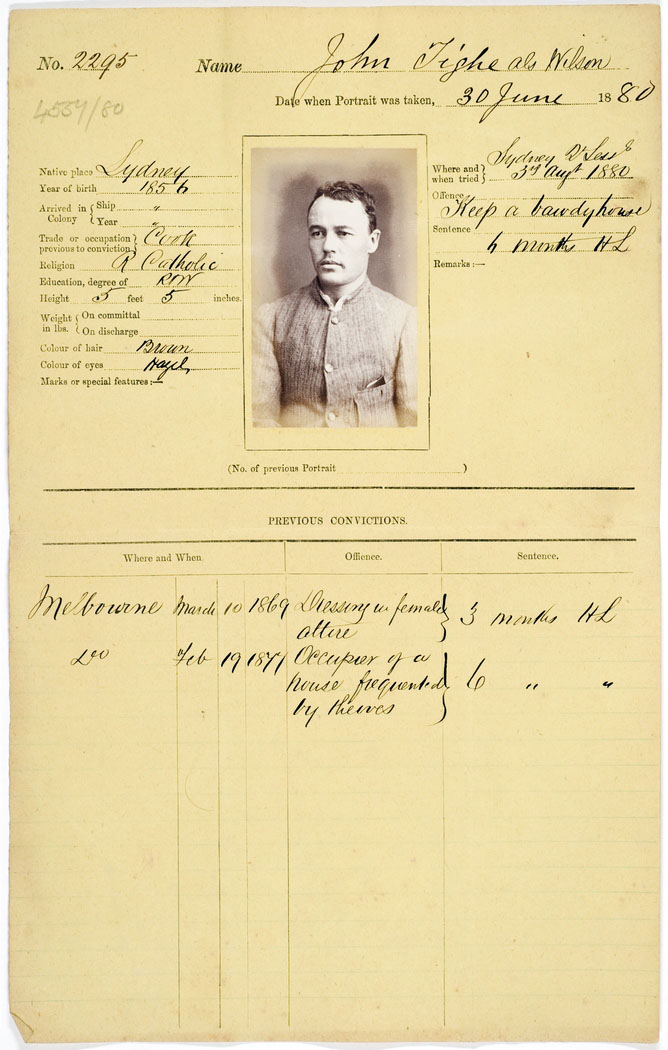 No. 2295 Name John Tighe als Wilson
Date when Portrait was taken, 30 June 1880
4557/80
Native place Sydney
Year of birth 1856
Arrived in Colony { Ship "
Year "
Trade or occupation previous to conviction } Cook
Religion R Catholic
Education, degree of R&W
Height 5 feet 5 inches.
Weight in lbs. { On committal
On discharge
Colour of hair Brown
Colour of eyes Hazel
Marks or special features:—
Where and when tried } Sydney Qr Sess
3rd Augt 1880
Offence
Keep a bawdyhouse
Sentence
6 months HL
Remarks:—
(No. of previous Portrait )
PREVIOUS CONVICTIONS.
Where and When. Offence. Sentence.
Melbourne March 10 1869 Dressing in female } 3 months HL
attire
Do Feb 19 1877 Occupier of a
house frequented } 6 " "
by thieves